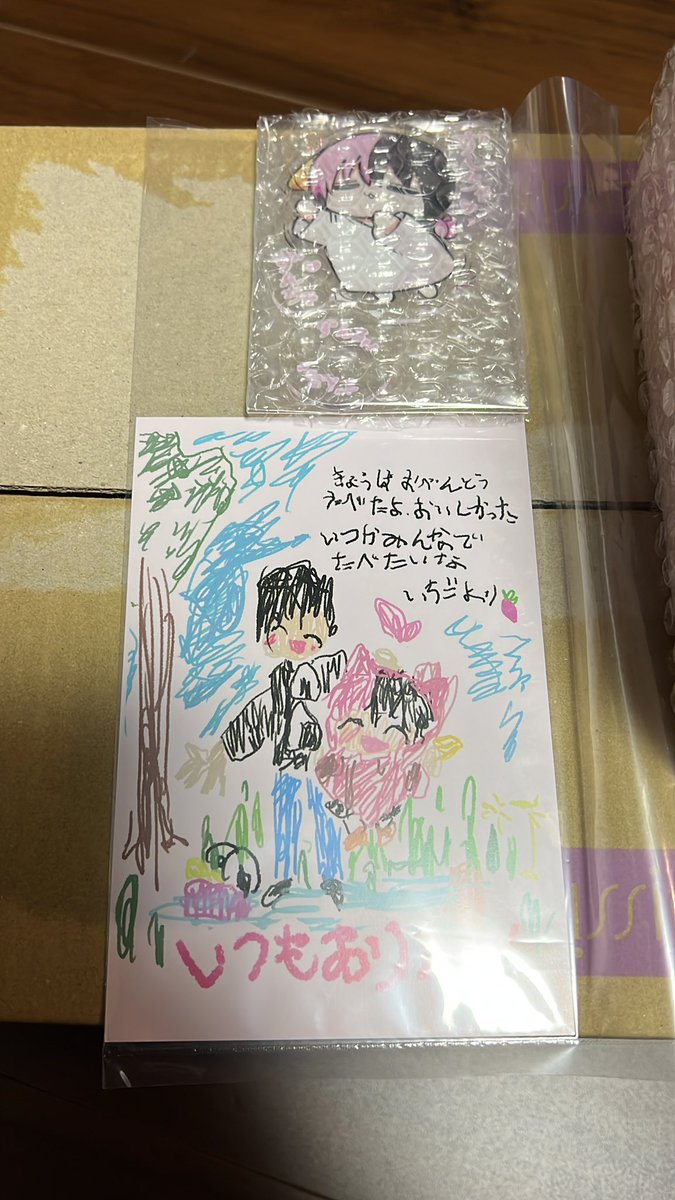 きょうはおべんとう
たべたよ.おいしかった
いつかみんなで
たべたいな
いちごより
いつもあり